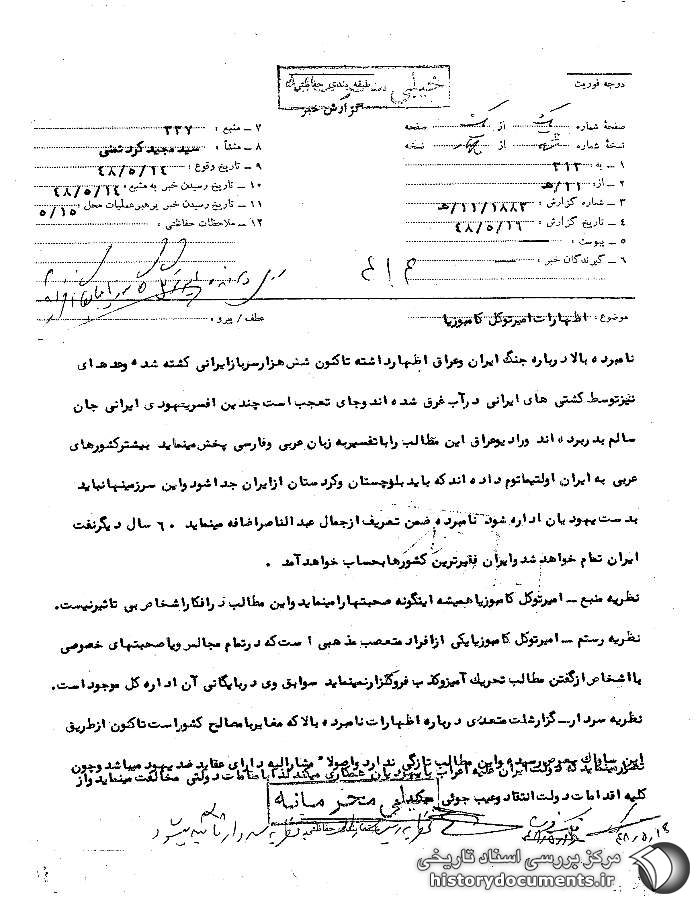 درجه فوریت
طبقه بندی حفاظتی
خیلی
گزارش خبر
صفحه شماره یک از یک صفحه
نسخه شماره از نسخه
۱ - به : ۳۱۲
۲ - از : ۱۱/ه
۳ - شماره گزارش : ۱۱/۱۸۸۲/ه
۴ - تاریخ گزارش : ۴۸/۵/۱۶
۵ - پیوست :
۶ - گیرندگان خبر :
۷ - منبع : ۳۳۷
۸ - منشأ : سید مجید کرد
۹ - تاریخ وقوع : ۴۸/۵/۱۴
۱۰ - تاریخ رسیدن خبر به منبع : ۴۸/۵/۱۴
۱۱ - تاریخ رسیدن خبر برهبر عملیات محل : ۵/۱۵
۱۲ - ملاحظات حفاظتی :
موضوع : اظهارات امیرتوکل کامبوزیا
عطف / پیرو :
نامبرده بالا درباره جنگ ایران وعراق اظهارداشته تاکنون شش هزارسربازایرانی کشته شده وعده ای
نیزتوسط کشتی های ایرانی درآب غرق شده اند وجای تعجب است چندین افسریهودی ایرانی جان
سالم بدربرده اند ورادیوعراق این مطالب راباتفسیربه زبان عربی وفارسی پخش مینماید بیشترکشورهای
عربی به ایران اولتیماتوم داده اند که باید بلوچستان وکردستان ازایران جدا شود واین سرزمینهانباید
بدست یهودیان اداره شود نامبرده ضمن تعریف ازجمال عبدالناصراضافه مینماید ۶۰ سال دیگرنفت
ایران تمام خواهد شد وایران فقیرترین کشورهابحساب خواهدآمد .
نظریه منبع - امیرتوکل کامبوزیا همیشه اینگونه صحبتهارامینماید واین مطالب درافکاراشخاص بی تاثیرنیست.
نظریه رستم - امیرتوکل کامبوزیایکی ازافراد متعصب مذهبی است که درتمام مجالس ویاصحبتهای خصوصی
بااشخاص ازگفتن مطالب تحریک آمیزوکذب فروگذارنمینماید سوابق وی دربایگانی آن اداره کل موجوداست.
نظریه سردار - گزارشات متعددی درباره اظهارات نامبرده بالا که مغایربامصالح کشوراست تاکنون ازطریق
این ساواک بعرض رسیده واین مطالب تازگی ندارد واصولا" مشارالیه دارای عقاید ضد یهود میباشد وچون
تصورمینماید که دولت ایران علیه اعراب بایهودیان همکاری میکند لذا بااقدامات دولتی مخالفت مینماید واز
کلیه اقدامات دولت انتقاد وعیب جوئی
خیلی محرمانه
طبقه بندی حفاظتی
۴۸/۵/۱۶
مرکز بررسی اسناد تاریخی
historydocuments.ir